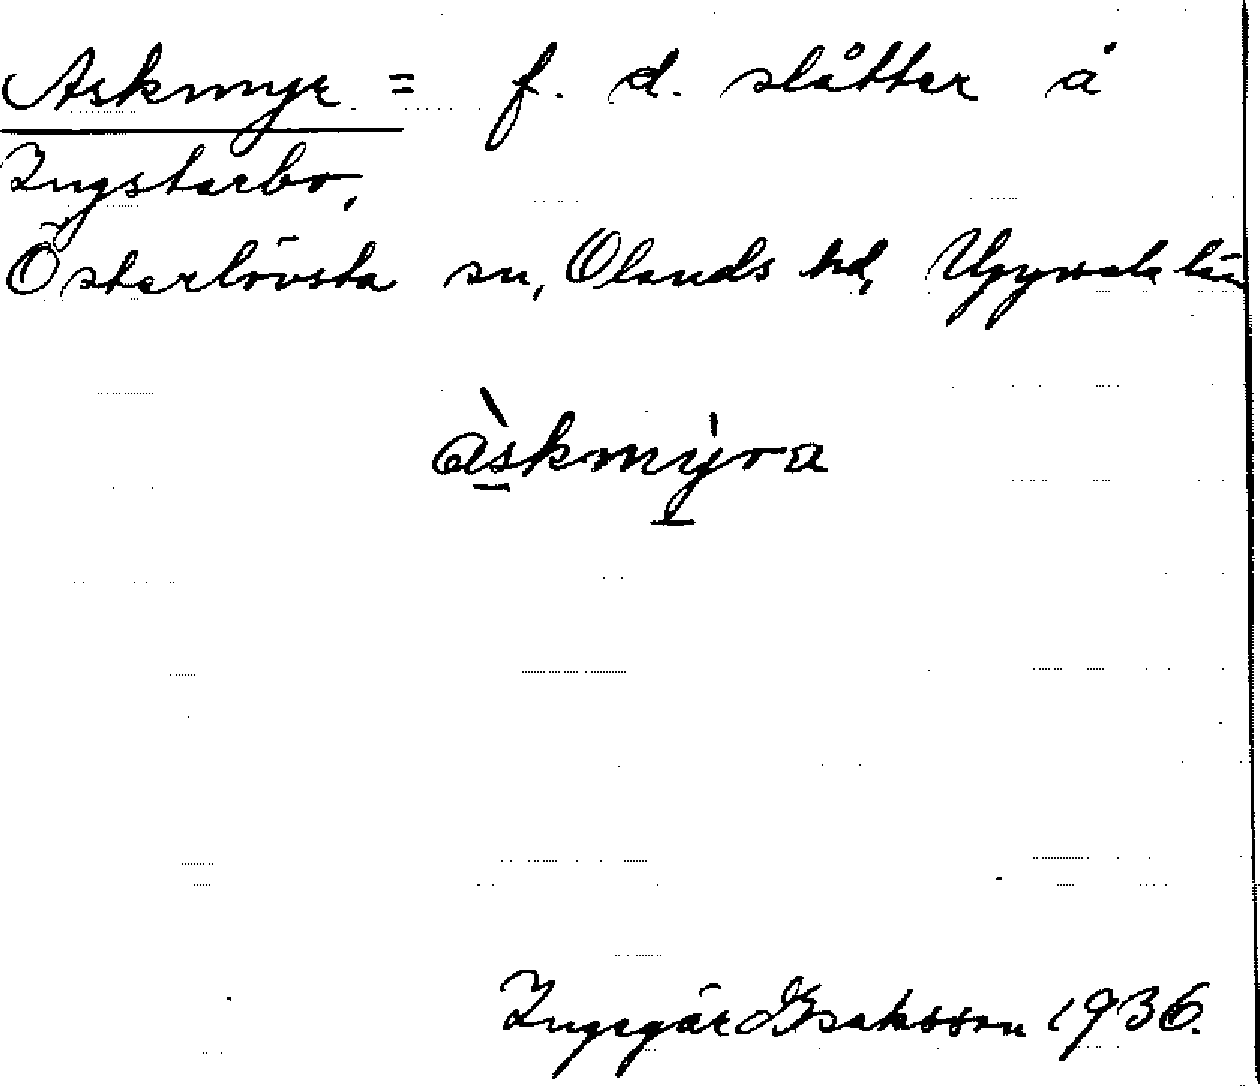 Askmyr = f. d. slåtter å
Ingstarbo,
Österlövsta sn, Olands hd, Uppsala län
àskmy̍ra
Ingegär Isaksson 1936.